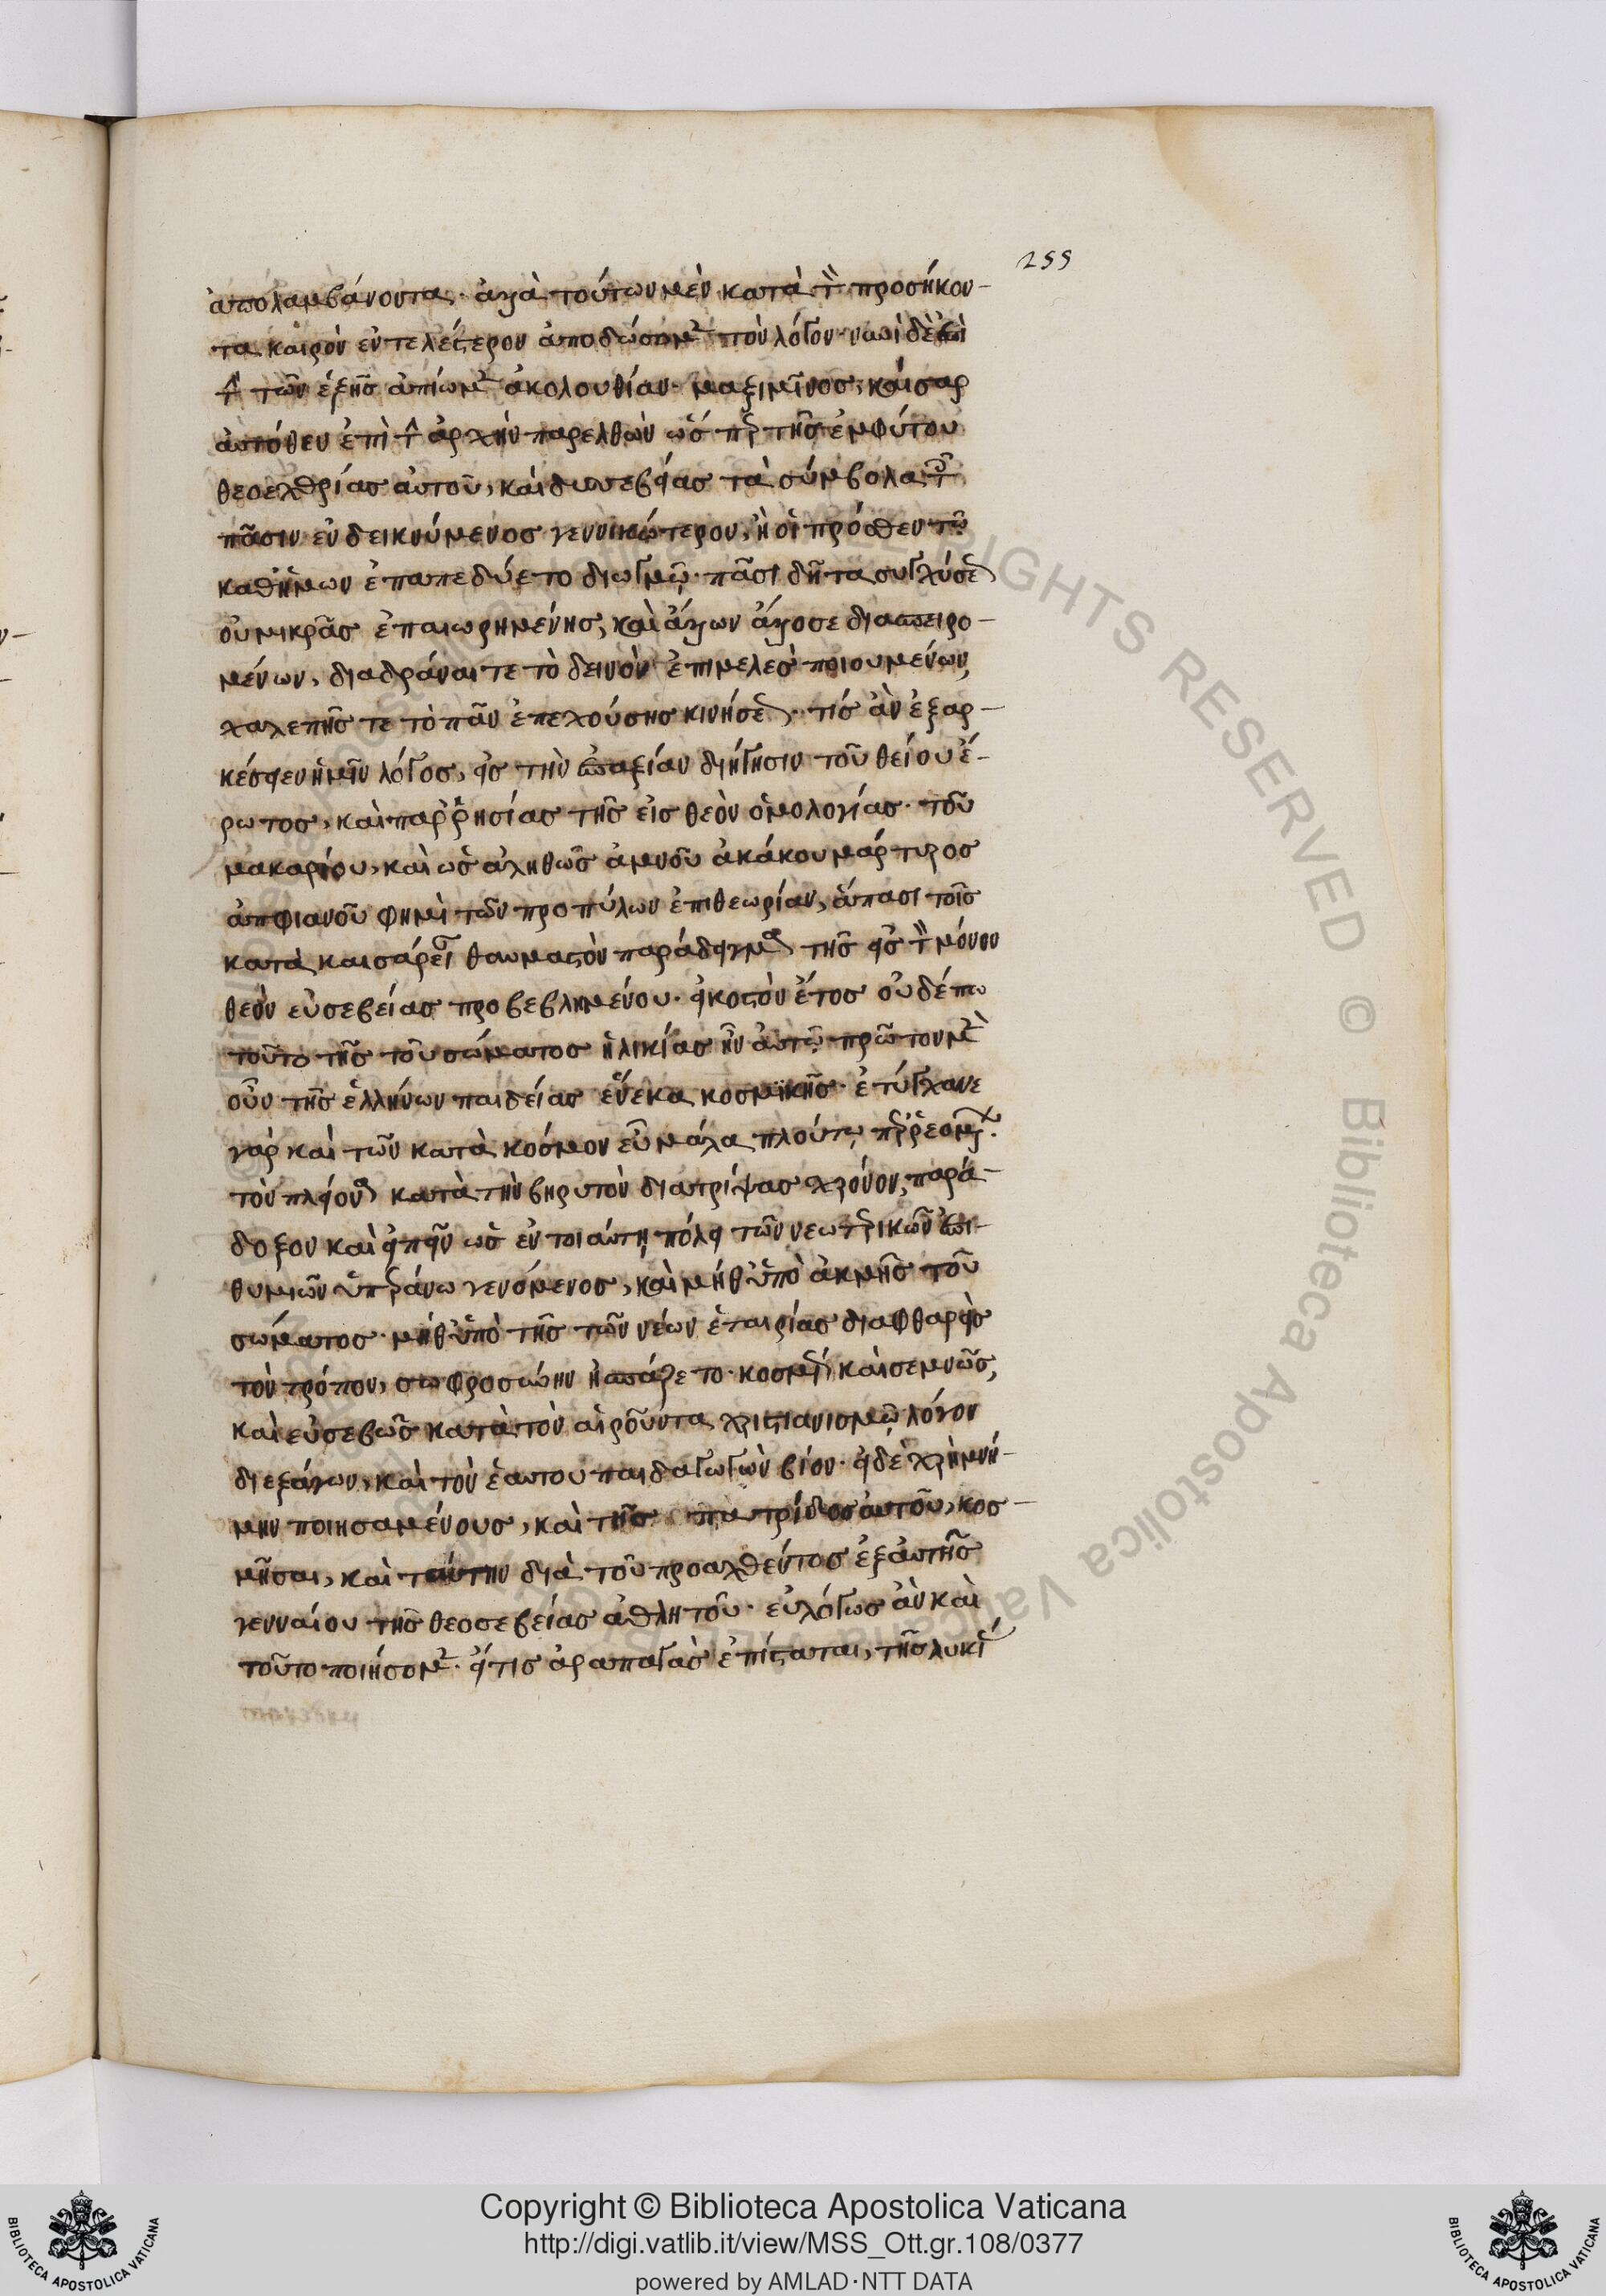 255
ἀπολαμβάνοντα· ἀλλὰ τούτων μὲν κατὰ τ̀ προσήκον-
τα καιρὸν ἐντελέστερον ἀποδώσομ τὸν λόγον· νυνὶ δὲ ἐπὶ
τ̀ τῶν ἑξῆς ἀπίωμ ἀκολουθίαν· μαξιμῖνος, καῖσαρ
αὐτόθεν ἐπὶ τ̀ ἀρχὴν παρελθὼν ὡς πρ τῆς ἐμφύτου
θεοεχθρίας αὐτοῦ, καὶ δυσσεβείας τὰ σύμβολα τ
πᾶσιν ἐνδεικνύμενος γεννικώτερον, ἢ οἱ πρόσθεν τῷ
καθ' ἡμῶν ἐπαπεδύετο διωγμῷ· πᾶσι δῆτα συγχύσε
οὐ μικρᾶς ἐπαιωρημένης, καὶ ἄλλων ἄλλοσε διασπειρο-
μένων, διαδράναι τε τὸ δεινὸν ἐπιμελὲς ποιουμένων,
χαλεπῆς τε τὸ πᾶν ἐπεχούσης κινήσε· τίς ἂν ἐξαρ-
κέσειεν ἡμῖν λόγος, εἰς τὴν ἐπαξίαν διήγησιν τοῦ θείου ἔ-
ρωτος, καὶ παρρησίας τῆς εἰς θεὸν ὁμολογίας· τοῦ
μακαρίου, καὶ ὡς ἀληθῶς ἀμνοῦ ἀκάκου μάρτυρος
ἀπφιανοῦ φημὶ τῶν προπύλων ἐπιθεωρίαν, ἅπασι τοῖς
κατὰ καισάρει θαυμαστὸν παράδειγμα τῆς εἰς τ̀ μόνον
θεὸν εὐσεβείας προβεβλημένου· εἰκοστὸν ἔτος οὐδέπω
τοῦτο τῆς τοῦ σώματος ἡλικίας ἦν αὐτῷ· πρῶτον μ
οὖν τῆς ἑλλήνων παιδείας εἵνεκα κοσμικῆς· ἐτύγχανε
γὰρ καὶ τῶν κατὰ κόσμον εὖ μάλα πλούτῳ
τὸν πλείονα κατὰ τὴν βηρυτὸν διατρίψας χρόνον, παρά-
δοξον καὶ εἰπεῖν ὡς ἐν τοιαύτῃ πόλει τῶν νεωτρικῶν ἐπι-
θυμιῶν ὑπράνω γενόμενος, καὶ μήθ' ὑπὸ ἀκμῆς τοῦ
σώματος· μήθ' ὑπὸ τῆς τῶν νέων ἑταιρίας διαφθαρεὶς
τὸν τρόπον, σωφροσύνην ἠσπάζετο· κοσμί καὶ σεμνῶς,
καὶ εὐσεβῶς κατὰ τὸν αἱροῦντα χριστιανισμῷ λόγον
διεξάγων, καὶ τὸν ἑαυτοῦ παιδαγωγῶν βίον· εἰ δὲ χρὴ μνή-
μην ποιησαμένους, καὶ τῆς πατρίδος αὐτοῦ, κοσ-
μῆσαι, καὶ ταύτην διὰ τοῦ προαχθέντος ἐξ αὐτῆς
γενναίου τῆς θεοσεβείας ἀθλητοῦ· εὐλόγως ἂν καὶ
τοῦτο ποιήσομ· εἴ τις ἀραπαγὰς ἐπίσταται, τῆς λυκί
RIGHTS RESERVED © Biblioteca Apostolica Vaticana
Copyright © Biblioteca Apostolica Vaticana
http://digi.vatlib.it/view/MSS_Ott.gr.108/0377
powered by AMLAD·NTT DATA
BIBLIOTECA APOSTOLICA VATICANA
BIBLIOTECA APOSTOLICA VATICANA